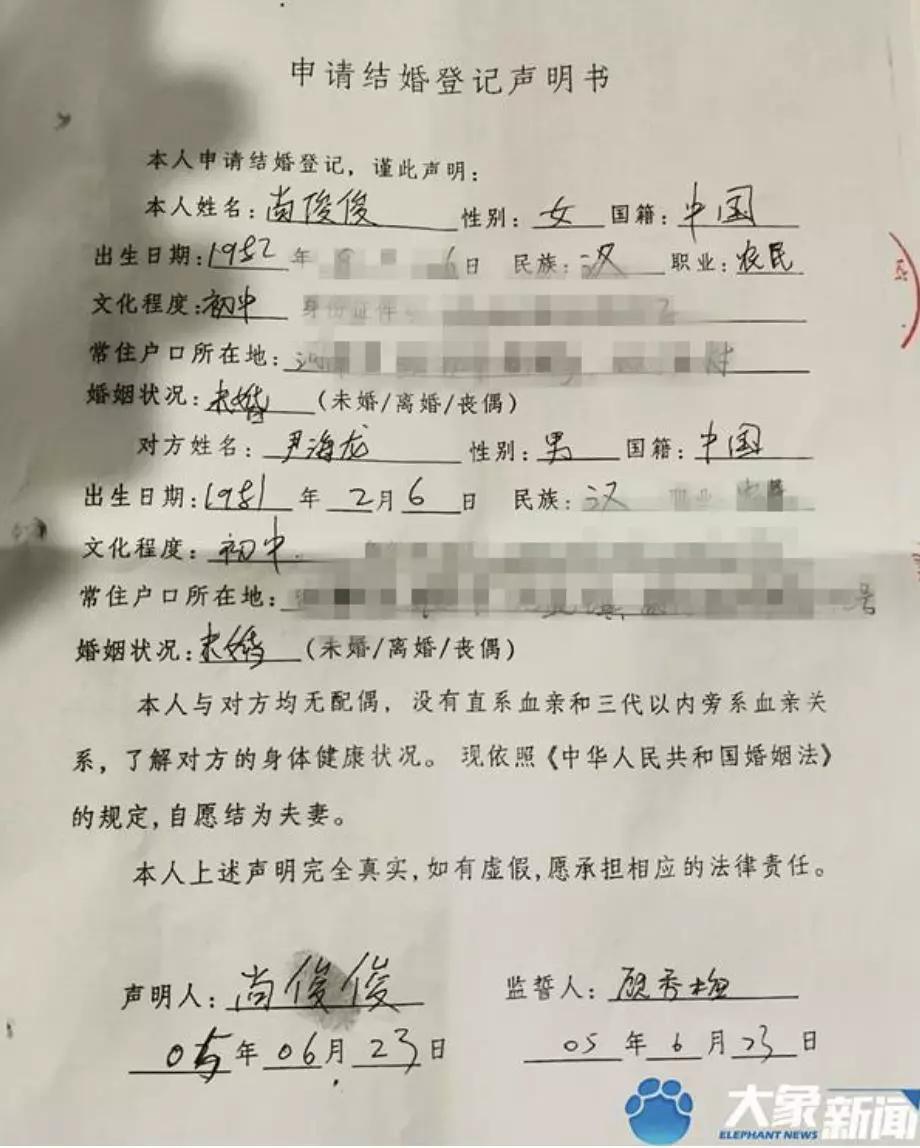 申请结婚登记声明书
本人申请结婚登记，谨此声明：
本人姓名：尚俊俊 性别：女 国籍：中国
出生日期：1982年 6日 民族：汉 职业：农民
文化程度：初中 身份证件
常住户口所在地： 村
婚姻状况：未婚（未婚/离婚/丧偶）
对方姓名：尹海龙 性别：男 国籍：中国
出生日期：1981年2月6日 民族：汉 职业 农民
文化程度：初中.
常住户口所在地： 号
婚姻状况：未婚（未婚/离婚/丧偶）
本人与对方均无配偶，没有直系血亲和三代以内旁系血亲关
系，了解对方的身体健康状况。现依照《中华人民共和国婚姻法》
的规定，自愿结为夫妻。
本人上述声明完全真实，如有虚假，愿承担相应的法律责任。
声明人：尚俊俊 监誓人：顾秀梅
05年06月23日 05年6月23日
大象新闻
ELEPHANT NEWS